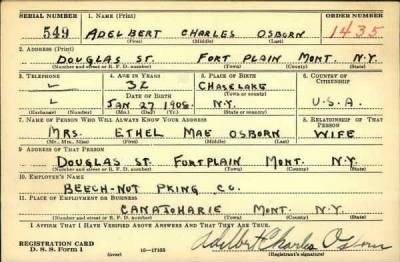 SERIAL NUMBER 1. NAME (Print) ORDER NUMBER
549 ADELBERT CHARLES OSBORN 1435
(First) (Middle) (Last)
2. ADDRESS (Print)
DOUGLAS ST. FORT PLAIN MONT. N.Y.
(Number and street or R. F. D. number) (Town) (County) (State)
3. TELEPHONE 4. AGE IN YEARS 5. PLACE OF BIRTH 6. COUNTRY OF CITIZENSHIP
32 CHASELAKE
DATE OF BIRTH (Town or county)
JAN 27 1908 N.Y. U.S.A.
(Mo.) (Day) (Yr.) (State or country)
7. NAME OF PERSON WHO WILL ALWAYS KNOW YOUR ADDRESS 8. RELATIONSHIP OF THAT PERSON
MRS. ETHEL MAE OSBORN WIFE
(Mr., Mrs., Miss) (First) (Middle) (Last)
9. ADDRESS OF THAT PERSON
DOUGLAS ST. FORT PLAIN MONT. N.Y.
(Number and street or R. F. D. number) (Town) (County) (State)
10. EMPLOYER'S NAME
BEECH-NUT PKING CO.
11. PLACE OF EMPLOYMENT OR BUSINESS
CANAJOHARIE MONT. N.Y.
(Number and street or R. F. D. number) (Town) (County) (State)
I AFFIRM THAT I HAVE VERIFIED ABOVE ANSWERS AND THAT THEY ARE TRUE.
REGISTRATION CARD
D. S. S. Form 1 (over) 16—17105
Adelbert Charles Osborn
(Registrant's signature)